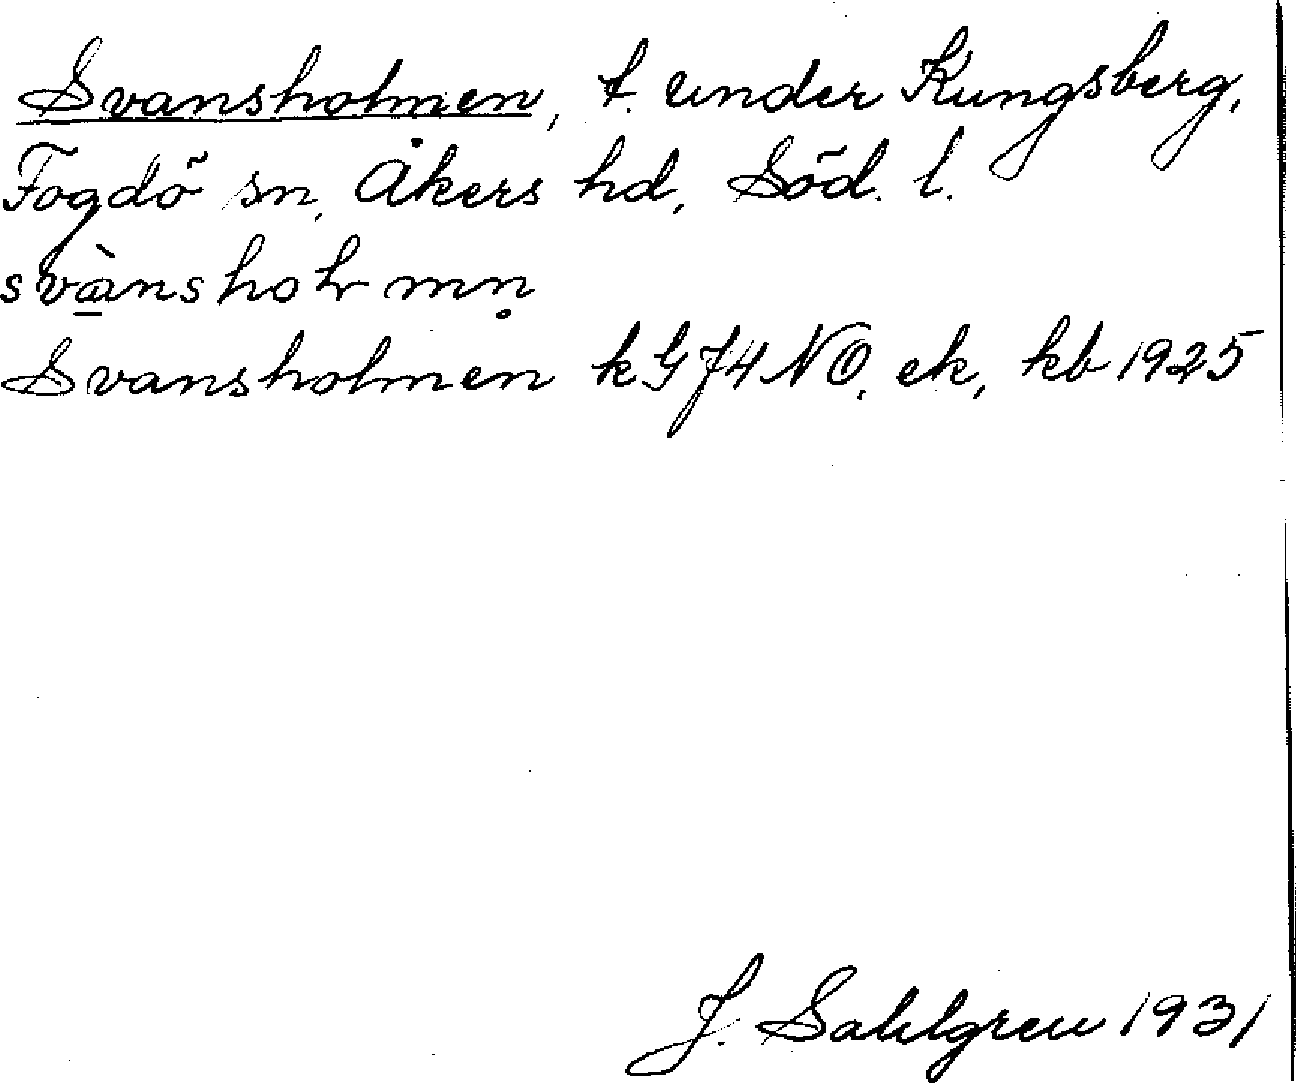 Svansholmen, t. under Kungsberg,
Fogdö sn, Åkers hd, Söd. l.
svànshoƚmṇ
Svansholmen k GJ4 NO, ek, kb 1925
J. Sahlgren 1931